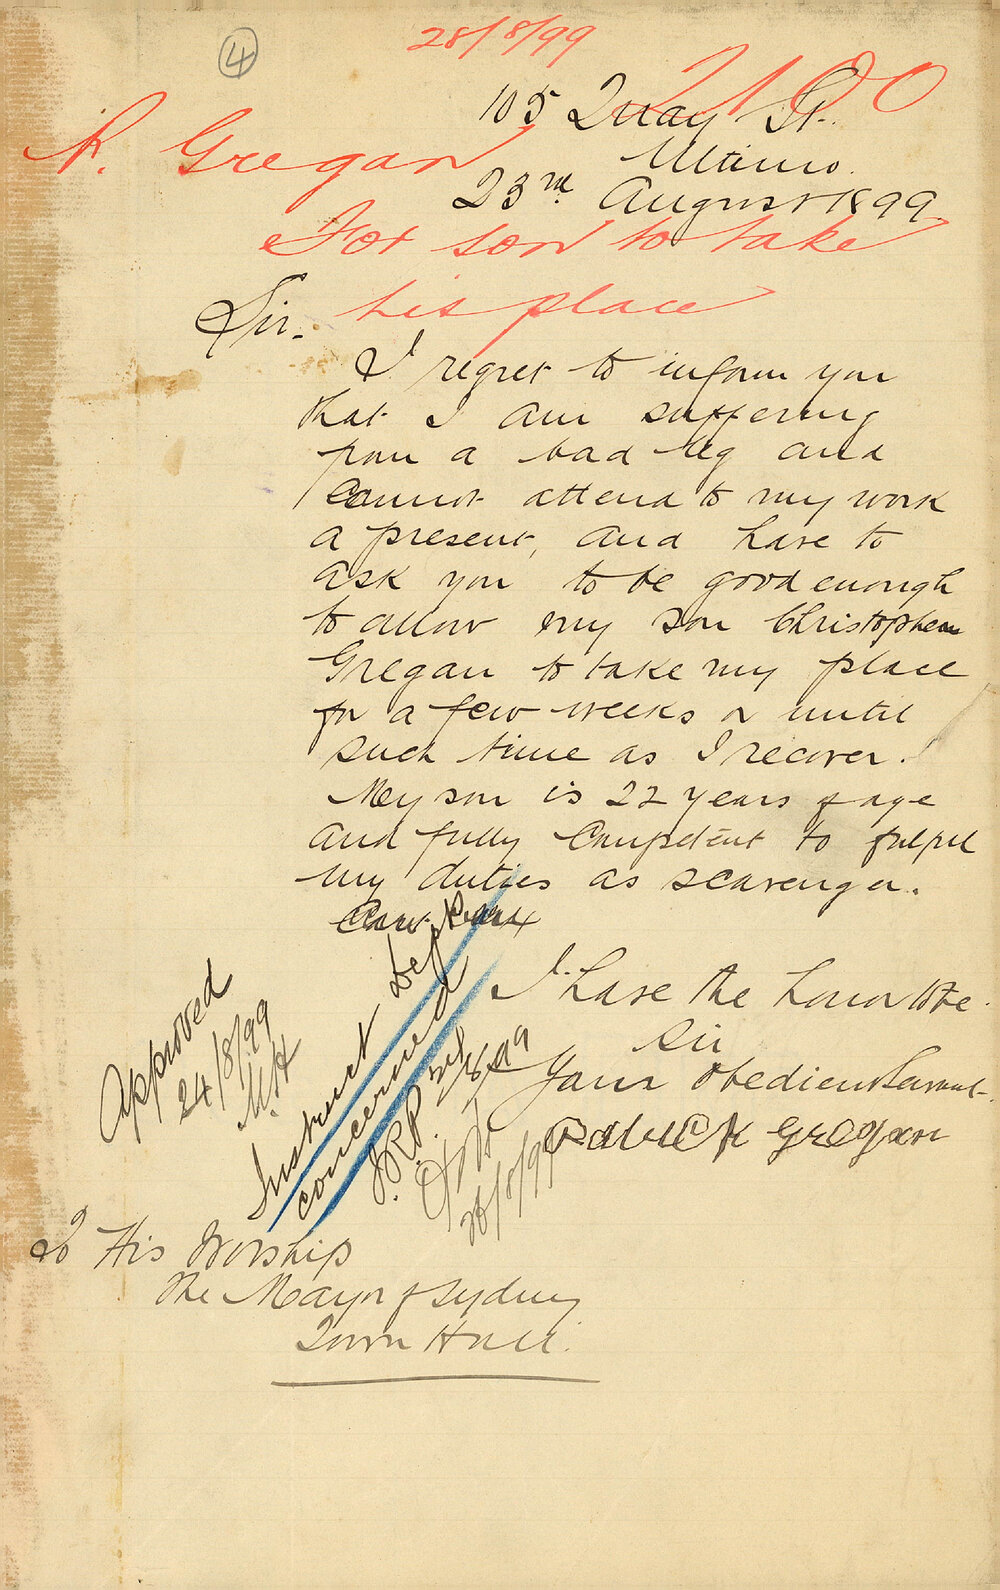 4
28/8/99
105 Quay St.
P. Gregan
Ultimo.
23rd August 1899.
For son to take
his place
Sir.
I regret to inform you
that I am suffering
from a bad leg and
cannot attend to my work
a present, and have to
ask you to be good enough
to allow my son Christopher
Gregan to take my place
for a few weeks or until
such time as I recover.
My son is 22 years of age
and fully Competent to fulfil
my duties as scavenger.
I have the honor to be
Sir
Your obedient Servant.
Patrick Gregan
Approved
24/8/99
Instruct Dept
concerned
28/8/99
To His Worship
The Mayor of Sydney
Town Hall.